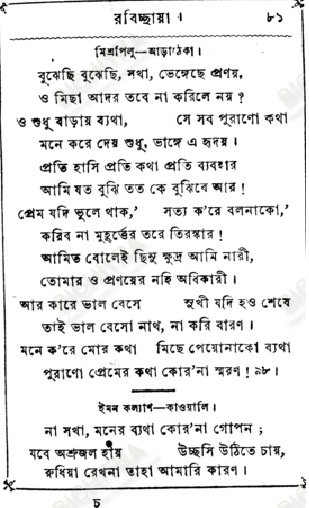 রবিচ্ছায়া ।
৮১
মিশ্রপিলু—আড়াঠেকা ।
বুঝেছি বুঝেছি, সখা, ভেঙ্গেছে প্রণয়,
ও মিছা আদর তবে না করিলে নয় ?
ও শুধু বাড়ায় ব্যথা, সে সব পুরাণো কথা
মনে করে দেয় শুধু, ভাঙ্গে এ হৃদয় ।
প্রতি হাসি প্রতি কথা প্রতি ব্যবহার
আমি যত বুঝি তত কে বুঝিবে আর !
প্রেম যদি ভুলে থাক,' সত্য ক'রে বলনাকো,'
করিব না মুহূর্ত্তের তরে তিরস্কার !
আমিত বোলেই ছিনু ক্ষুদ্র আমি নারী,
তোমার ও প্রণয়ের নহি অধিকারী ।
আর কারে ভাল বেসে সুখী যদি হও শেষে
তাই ভাল বেসো নাথ, না করি বারণ ।
মনে ক'রে মোর কথা মিছে পেয়োনাকো ব্যথা
পুরাণো প্রেমের কথা কোর'না স্মরণ ! ৯৮ ।
ইমন কল্যাণ—কাওয়ালি ।
না সখা, মনের ব্যথা কোর'না গোপন ;
যবে অশ্রুজল হায় উচ্ছসি উঠিতে চায়,
রুধিয়া রেখনা তাহা আমারি কারণ ।
চ